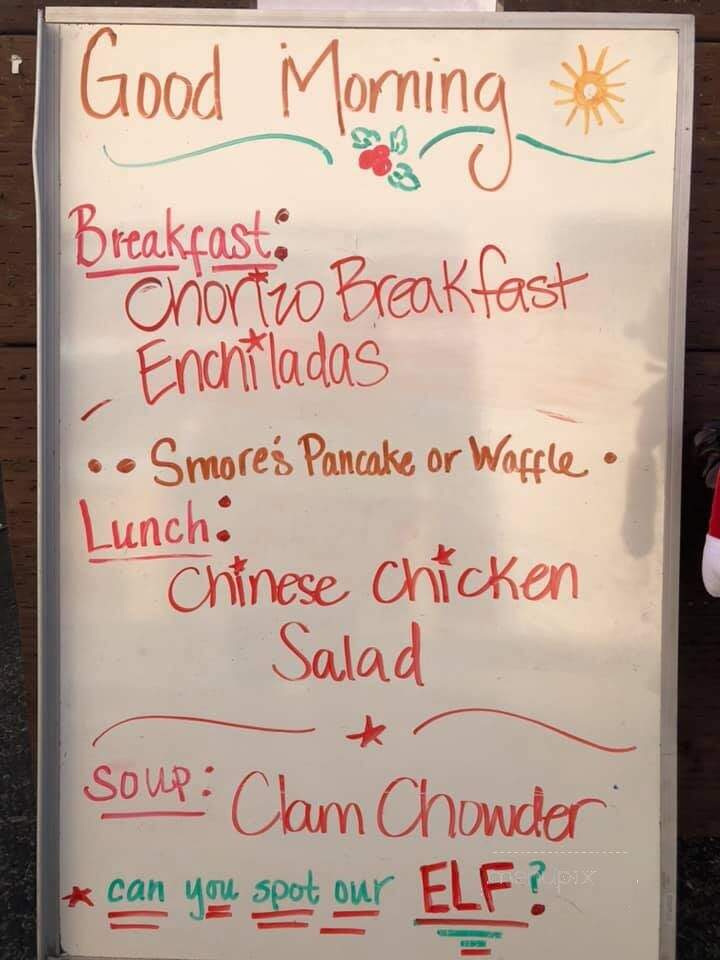 Good Morning
Breakfast:
Chorizo Breakfast
Enchiladas
Smore's Pancake or Waffle
Lunch:
Chinese Chicken
Salad
Soup: Clam Chowder
can you spot our ELF?
menupix